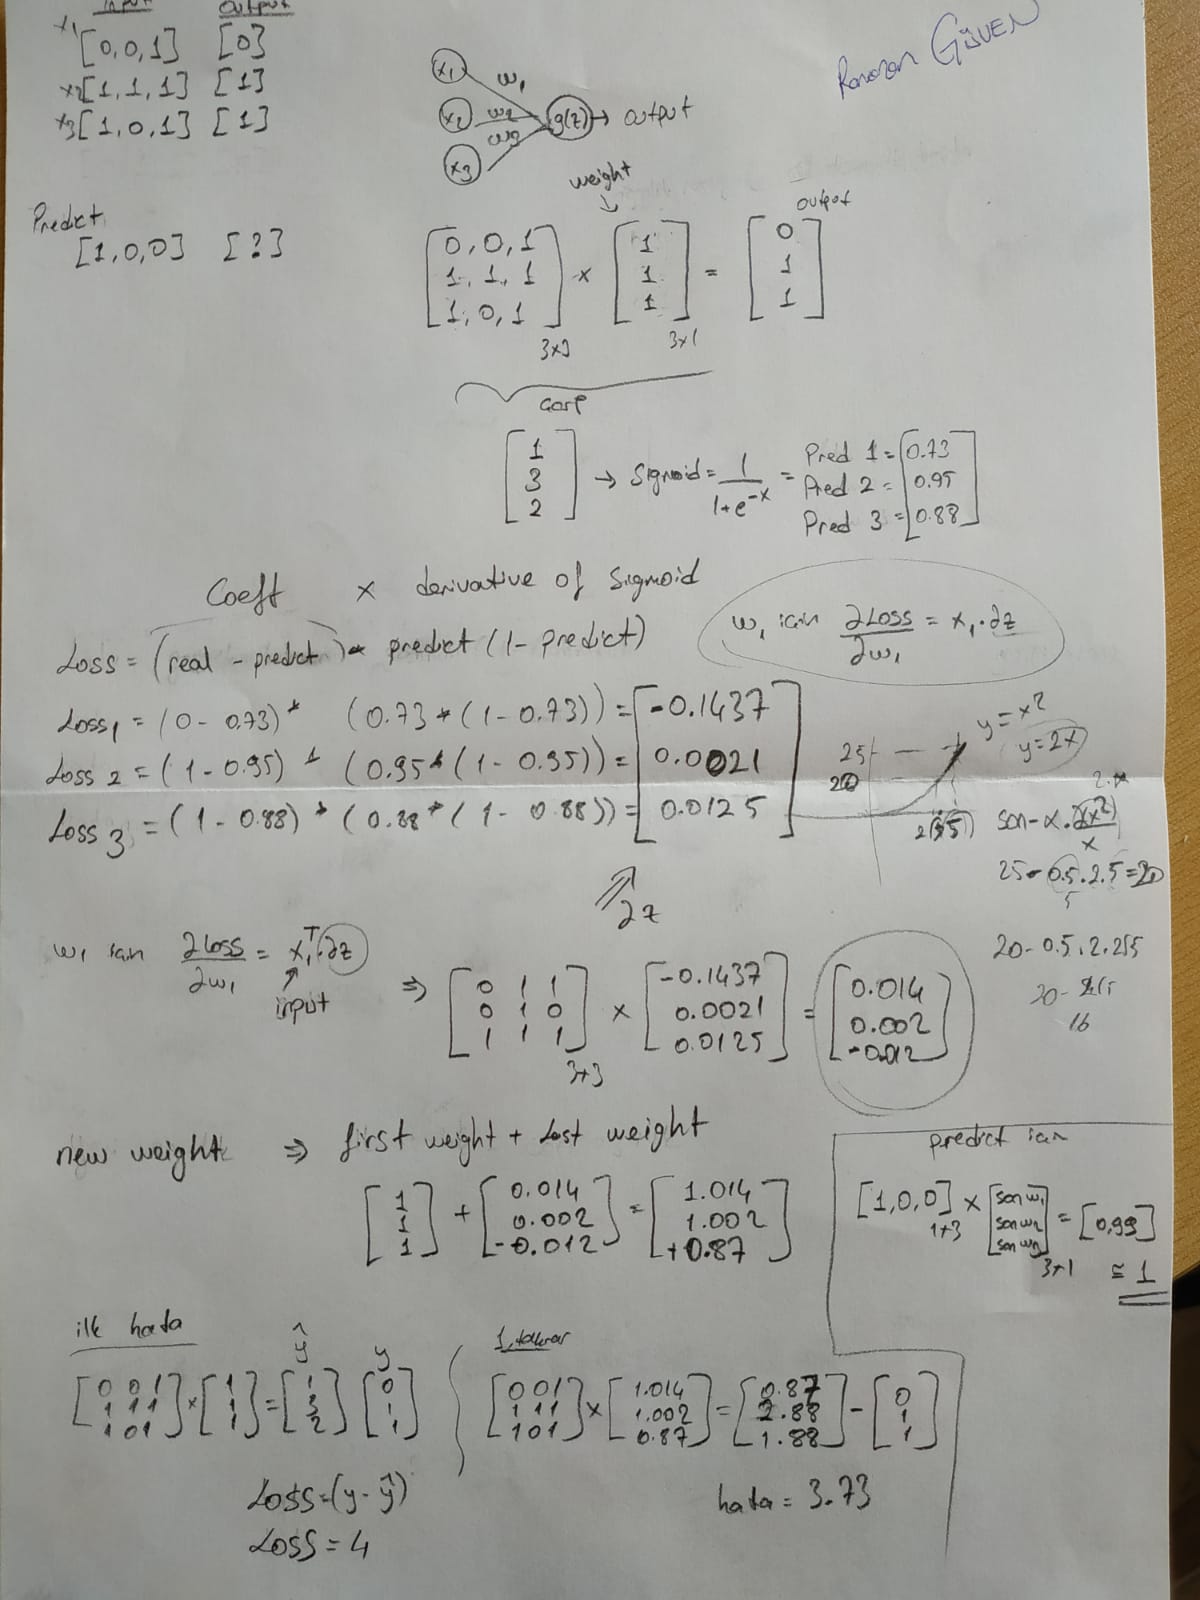 Input Output
x₁ [0,0,1] [0]
x₂ [1,1,1] [1]
x₃ [1,0,1] [1]
Ramazan GÜVEN
x₁ w₁
x₂ w₂ g(z) → output
x₃ w₃
Predict
[1,0,0] [?]
weight
output
[0,0,1
1,1,1
1,0,1] 3x3 x [1
1
1] 3x1 = [0
1
1]
Carp
[1
3
2] → Sigmoid = 1/(1+e^-x) = Pred 1 = [0.73
Pred 2 = 0.95
Pred 3 = 0.88]
Coeft x derivative of Sigmoid
Loss = (real - predict) * predict (1- predict)
w₁ için ∂Loss/∂w₁ = x₁.∂z
Loss₁ = (0 - 0.73) * (0.73 * (1 - 0.73)) = [-0.1437
Loss 2 = (1 - 0.95) * (0.95 * (1 - 0.95)) = 0.0021
Loss 3 = (1 - 0.88) * (0.88 * (1 - 0.88)) = 0.0125]
∂z
y = x²
y = 2x
25
20
son - α.
25 - 0.5.2.5 = 20
20 - 0.5.2.
16
w₁ için ∂Loss/∂w₁ = x₁ᵀ.∂z
input
⇒ [0 1 1
0 1 0
1 1 1] 3x3 x [-0.1437
0.0021
0.0125] = [0.014
0.002
-0.012]
new weight ⇒ first weight + Lost weight
[1
1
1] + [0.014
0.002
-0.012] = [1.014
1.002
+0.87]
predict için
[1,0,0] 1x3 x [son w₁
son w₂
son w₃] 3x1 = [0,99]
≅ 1
ilk hata
[0 0 1
1 1 1
1 0 1] x [1
1
1] = ŷ [1
3
2] y [0
1
1]
Loss = (y - ŷ)
Loss = 4
1. tekrar
[0 0 1
1 1 1
1 0 1] x [1.014
1.002
0.87] = [0.87
2.88
1.88] - [0
1
1]
hata = 3.73